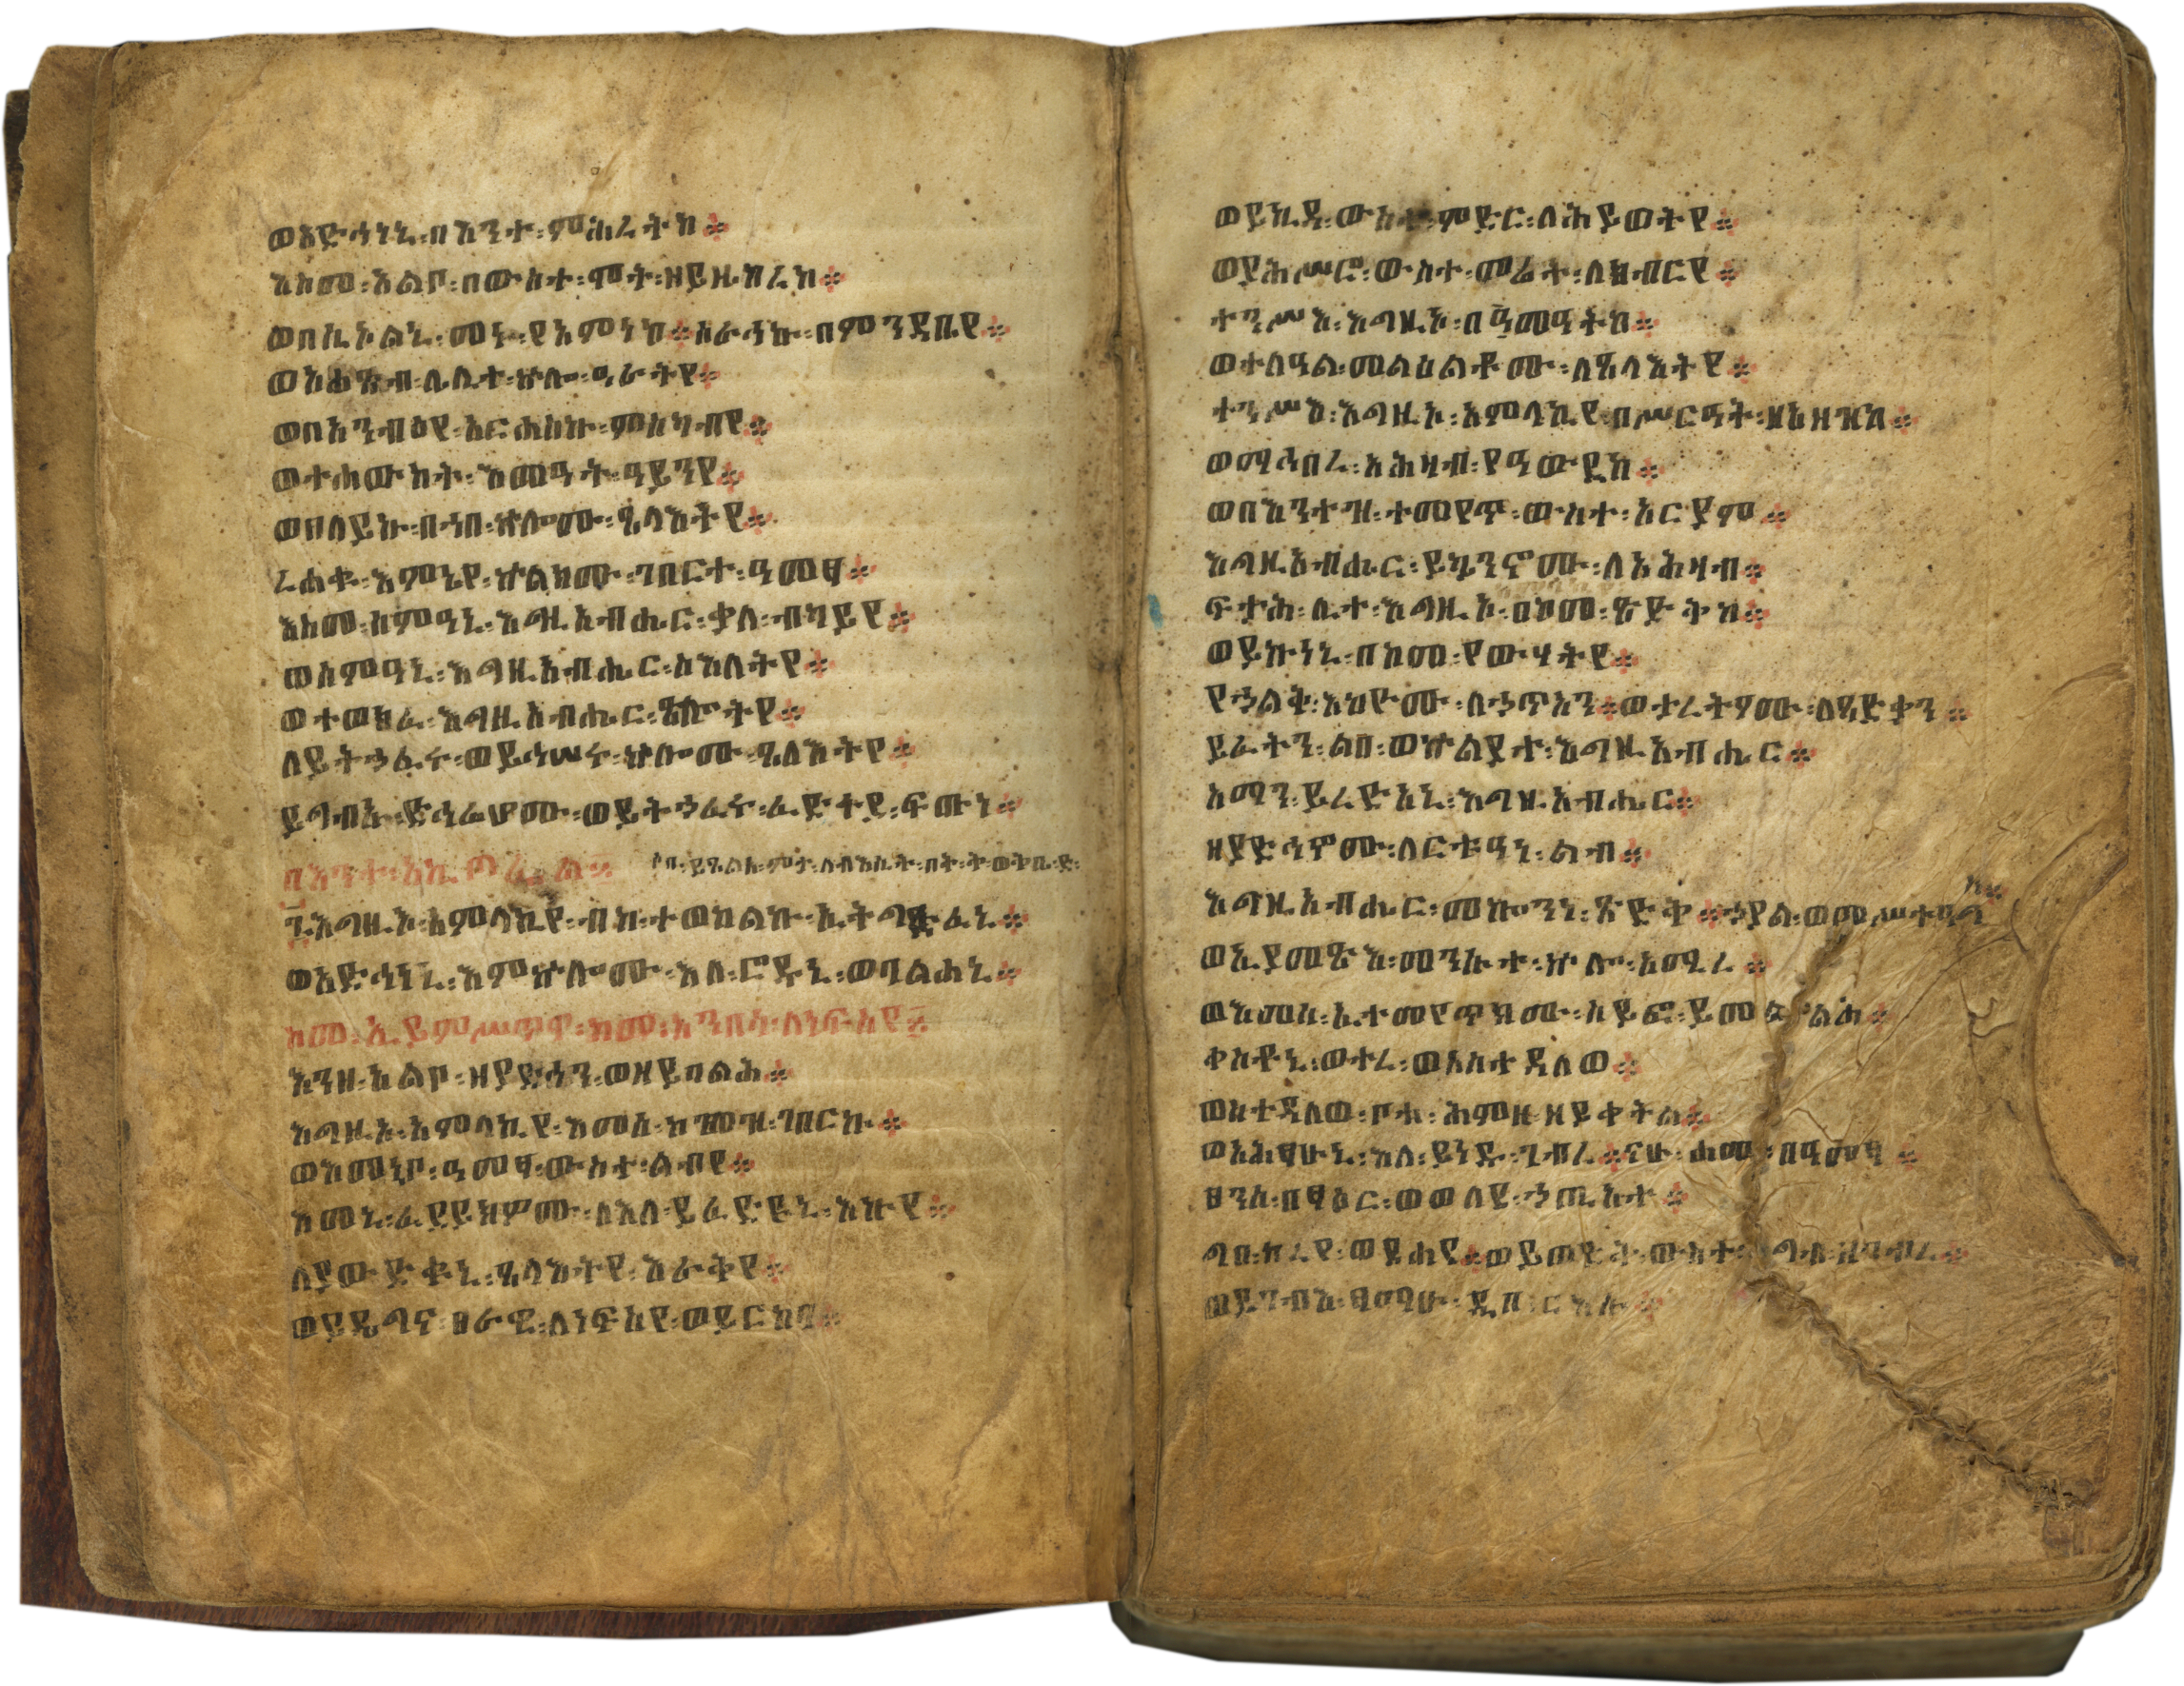 ወአድኅነኒ፡በእንተ፡ምሕረትከ።
እስመ፡አልቦ፡በውስተ፡ሞት፡ዘይዜከረከ።
ወበሲኦልኒ፡መኑ፡የአምነከ።ሰራኅኩ፡በምንዳቤየ።
ወአሐፅብ፡ሌሊተ፡ኵሎ፡ዓራትየ።
ወበአንብዕየ፡አርሐስኩ፡ምስካብየ።
ወተሐውከት፡እመዓት፡ዓይንየ።
ወበለይኩ፡በኀበ፡ኵሎሙ፡ፄላእትየ።
ረሐቁ፡እምኔየ፡ኵልክሙ፡ገበርተ፡ዓመፃ።
እስመ፡ሰምዓኒ፡እግዚአብሔር፡ቃለ፡ብካይየ።
ወሰምዓኒ፡እግዚአብሔር፡ስእለትየ።
ወተወክፈ፡እግዚአብሔር፡ጸሎትየ።
ለይትኃፈሩ፡ወይኅሠሩ፡ኵሎሙ፡ጸላእትየ።
ይግብኡ፡ድኅሬሆሙ፡ወይትኃፈሩ፡ፍጡነ።
በእንተ፡አኪጦፌል።
፯እግዚኦ፡አምላኪየ፡ብከ፡ተወከልኩ፡ኢትግድፈኒ።
ወአድኅነኒ፡እምኵሎሙ፡እለ፡ሮዱኒ፡ወባልሐኒ።
ከመ፡ኢይምሥጥዋ፡ከመ፡አንበሳ፡ለነፍስየ።
እንዘ፡አልቦ፡ዘያድኅን፡ወዘይባልሕ።
እግዚኦ፡አምላኪየ፡እመሰ፡ከመዝ፡ገበርኩ።
ወእመኒቦ፡ዓመፃ፡ውስተ፡ልብየ።
እመኒ፡ፈደይክዎሙ፡ለእለ፡ይፈድዩኒ፡እኩየ።
ለያውድቁኒ፡ጸላእትየ፡እራቅየ።
ወይዴግና፡ፀራዊ፡ለነፍስየ፡ወይርከባ።
ወይኪዳ፡ውስተ፡ምድር፡ለሕይወትየ።
ወያሕሥሮ፡ውስተ፡መሬት፡ለክብርየ።
ተንሥእ፡እግዚኦ፡በመዓትከ።
ወተለዓል፡መልዕልቶሙ፡ለጸላእትየ።
ተንሥእ፡እግዚኦ፡አምላኪየ፡በሥርዓት፡ዘአዘዝከ።
ወማኅበረ፡አሕዛብ፡የዓውደከ።
ወበእንተዝ፡ተመየጥ፡ውስተ፡አርያም።
እግዚአብሔር፡ይኴንኖሙ፡ለአሕዛብ።
ፍታሕ፡ሊተ፡እግዚኦ፡በከመ፡ጽድቅከ።
ወይኩነኒ፡በከመ፡የውሃትየ።
የኃልቅ፡እከዮሙ፡ለኃጥአን።ወታረትዖሙ፡ለጻድቃን።
ይፈትን፡ልበ፡ወኵልያተ፡እግዚአብሔር።
አማን፡ይረድአኒ፡እግዚአብሔር።
ዘያድኅኖሙ፡ለርቱዓነ፡ልብ።
እግዚአብሔር፡መኰንነ፡ጽድቅ።ኃያል፡ወመሥተዓግሥ።
ወኢያመጽእ፡መንሱተ፡ኵሎ፡አሚረ።
ወእመሰ፡ኢተመየጥክሙ፡ሰይፎ፡ይመልሕ።
ቀስቶኒ፡ወተረ፡ወአስተዳለወ።
ወአስተዳለወ፡ቦቱ፡ሕምዘ፡ዘይቀትል።
ወአሕፃሁኒ፡እለ፡ይነዱ፡ገብረ።ናሁ፡ሐመ፡በዓመፃ።
ፀንሰ፡በፃዕር፡ወወለደ፡ኃጢአተ።
ግበ፡ከረየ፡ወደሐየ።ወይወድቅ፡ውስተ፡ግብ፡ዘገብረ።
ወይገብእ፡ፃማሁ፡ዲበ፡ርእሱ።